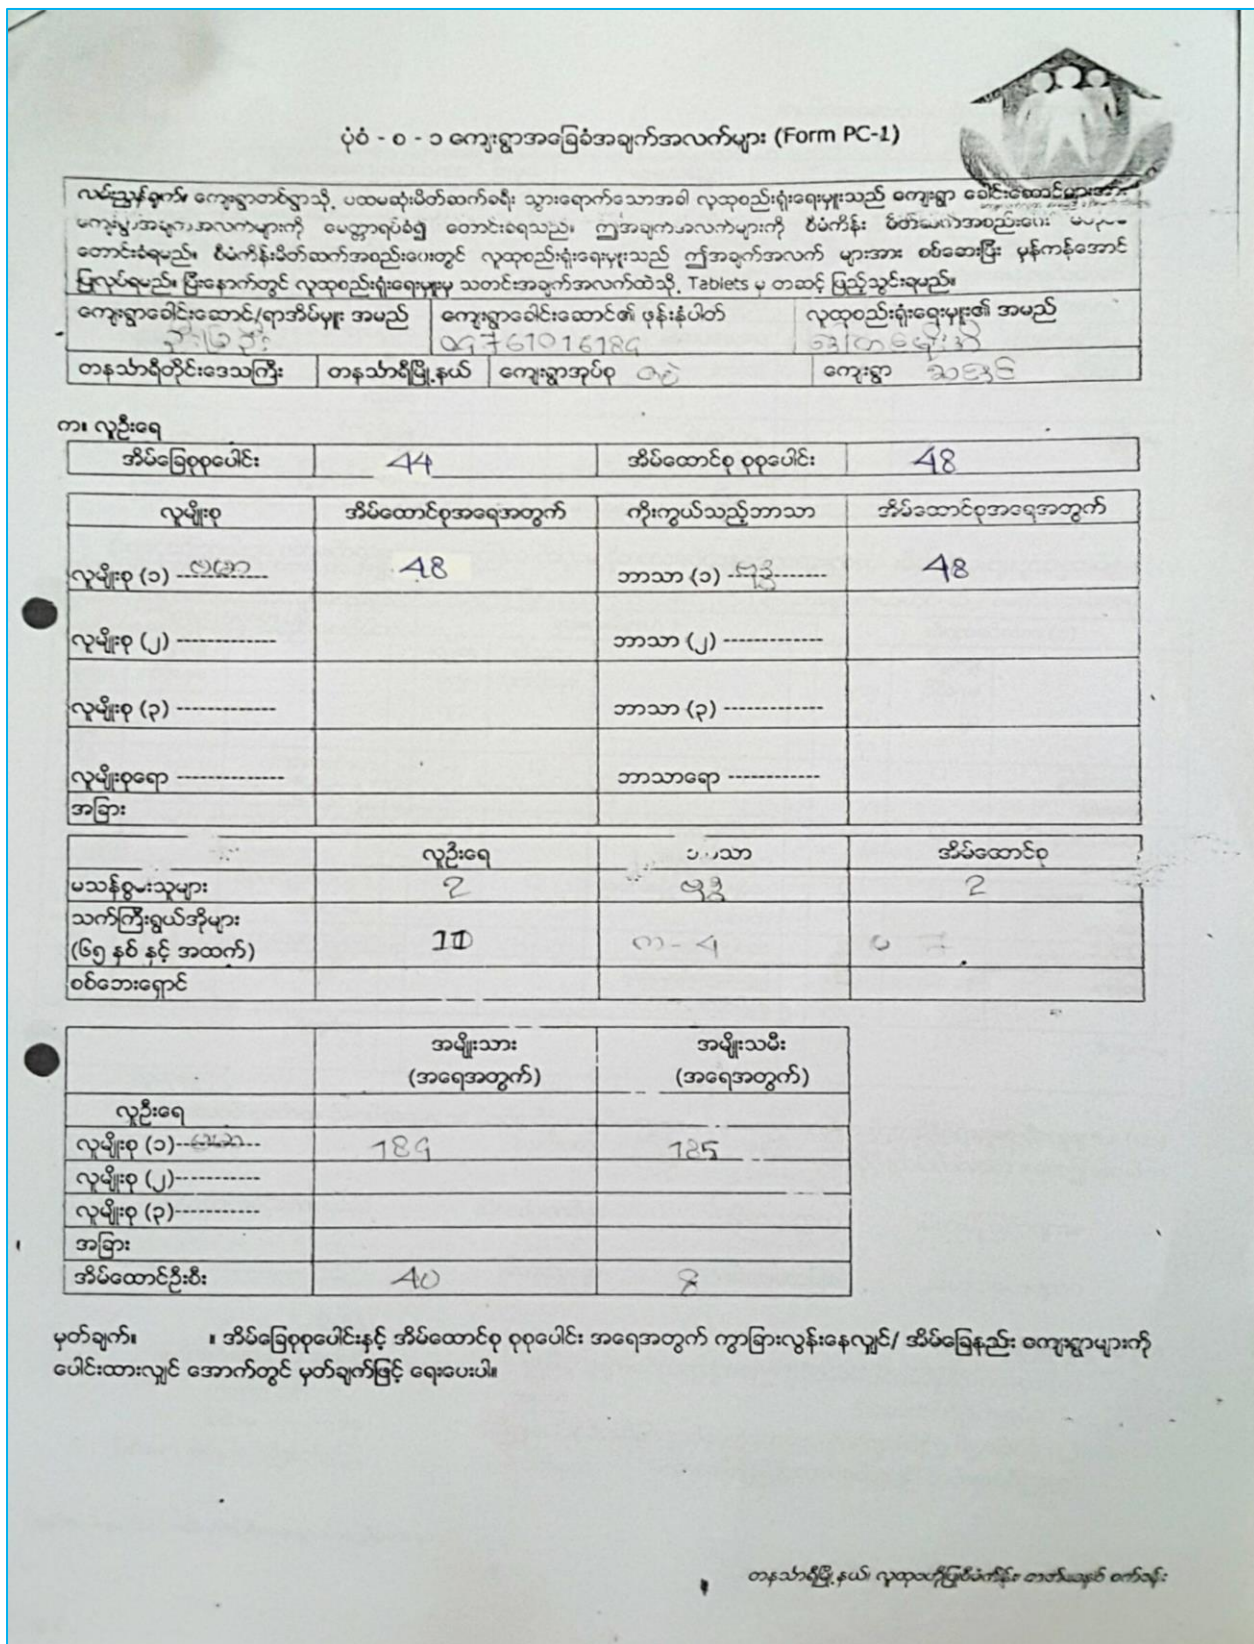 ပုံစံ - စ - ၁ ကျေးရွာအခြေခံအချက်အလက်များ (Form PC-1)
လမ်းညွှန်ချက်။ ကျေးရွာတစ်ရွာသို့ ပထမဆုံးမိတ်ဆက်ခရီး သွားရောက်သောအခါ လူထုစည်းရုံးရေးမှူးသည် ကျေးရွာ ခေါင်းဆောင်များအား
ကျေးရွာအချက်အလက်များကို မေတ္တာရပ်ခံ၍ တောင်းခံရသည်။ ဤအချက်အလက်များကို စီမံကိန်း မိတ်ဆက်အစည်းဝေး
တောင်းခံရမည်။ စီမံကိန်းမိတ်ဆက်အစည်းဝေးတွင် လူထုစည်းရုံးရေးမှူးသည် ဤအချက်အလက် များအား စစ်ဆေးပြီး မှန်ကန်အောင်
ပြုလုပ်ရမည်။ ပြီးနောက်တွင် လူထုစည်းရုံးရေးမှူးမှ သတင်းအချက်အလက်ထဲသို့ Tablets မှ တဆင့် ဖြည့်သွင်းရမည်။
ကျေးရွာခေါင်းဆောင်/ရာအိမ်မှူး အမည် ကျေးရွာခေါင်းဆောင်၏ ဖုန်းနံပါတ် လူထုစည်းရုံးရေးမှူး၏ အမည်
09761016189
တနင်္သာရီတိုင်းဒေသကြီး တနင်္သာရီမြို့နယ် ကျေးရွာအုပ်စု ကျေးရွာ
က။ လူဦးရေ
အိမ်ခြေစုစုပေါင်း 44 အိမ်ထောင်စု စုစုပေါင်း 48
လူမျိုးစု အိမ်ထောင်စုအရေအတွက် ကိုးကွယ်သည့်ဘာသာ အိမ်ထောင်စုအရေအတွက်
လူမျိုးစု (၁) ဗမာ 48 ဘာသာ (၁) ဗုဒ္ဓ 48
လူမျိုးစု (၂) ------------- ဘာသာ (၂) -------------
လူမျိုးစု (၃) ------------- ဘာသာ (၃) -------------
လူမျိုးစုရော -------------- ဘာသာရော ------------
အခြား
လူဦးရေ ဘာသာ အိမ်ထောင်စု
မသန်စွမ်းသူများ 2 ဗုဒ္ဓ 2
သက်ကြီးရွယ်အိုများ
(၆၅ နှစ် နှင့် အထက်)
စစ်ဘေးရှောင်
အမျိုးသား အမျိုးသမီး
(အရေအတွက်) (အရေအတွက်)
လူဦးရေ
လူမျိုးစု (၁) ဗမာ 189 185
လူမျိုးစု (၂)-----------
လူမျိုးစု (၃)-----------
အခြား
အိမ်ထောင်ဦးစီး 40 8
မှတ်ချက်။ ။ အိမ်ခြေစုစုပေါင်းနှင့် အိမ်ထောင်စု စုစုပေါင်း အရေအတွက် ကွာခြားလွန်းနေလျှင်/ အိမ်ခြေနည်း ကျေးရွာများကို
ပေါင်းထားလျှင် အောက်တွင် မှတ်ချက်ဖြင့် ရေးပေးပါ။
တနင်္သာရီမြို့နယ်၊ လူထုဗဟိုပြုစီမံကိန်း၊